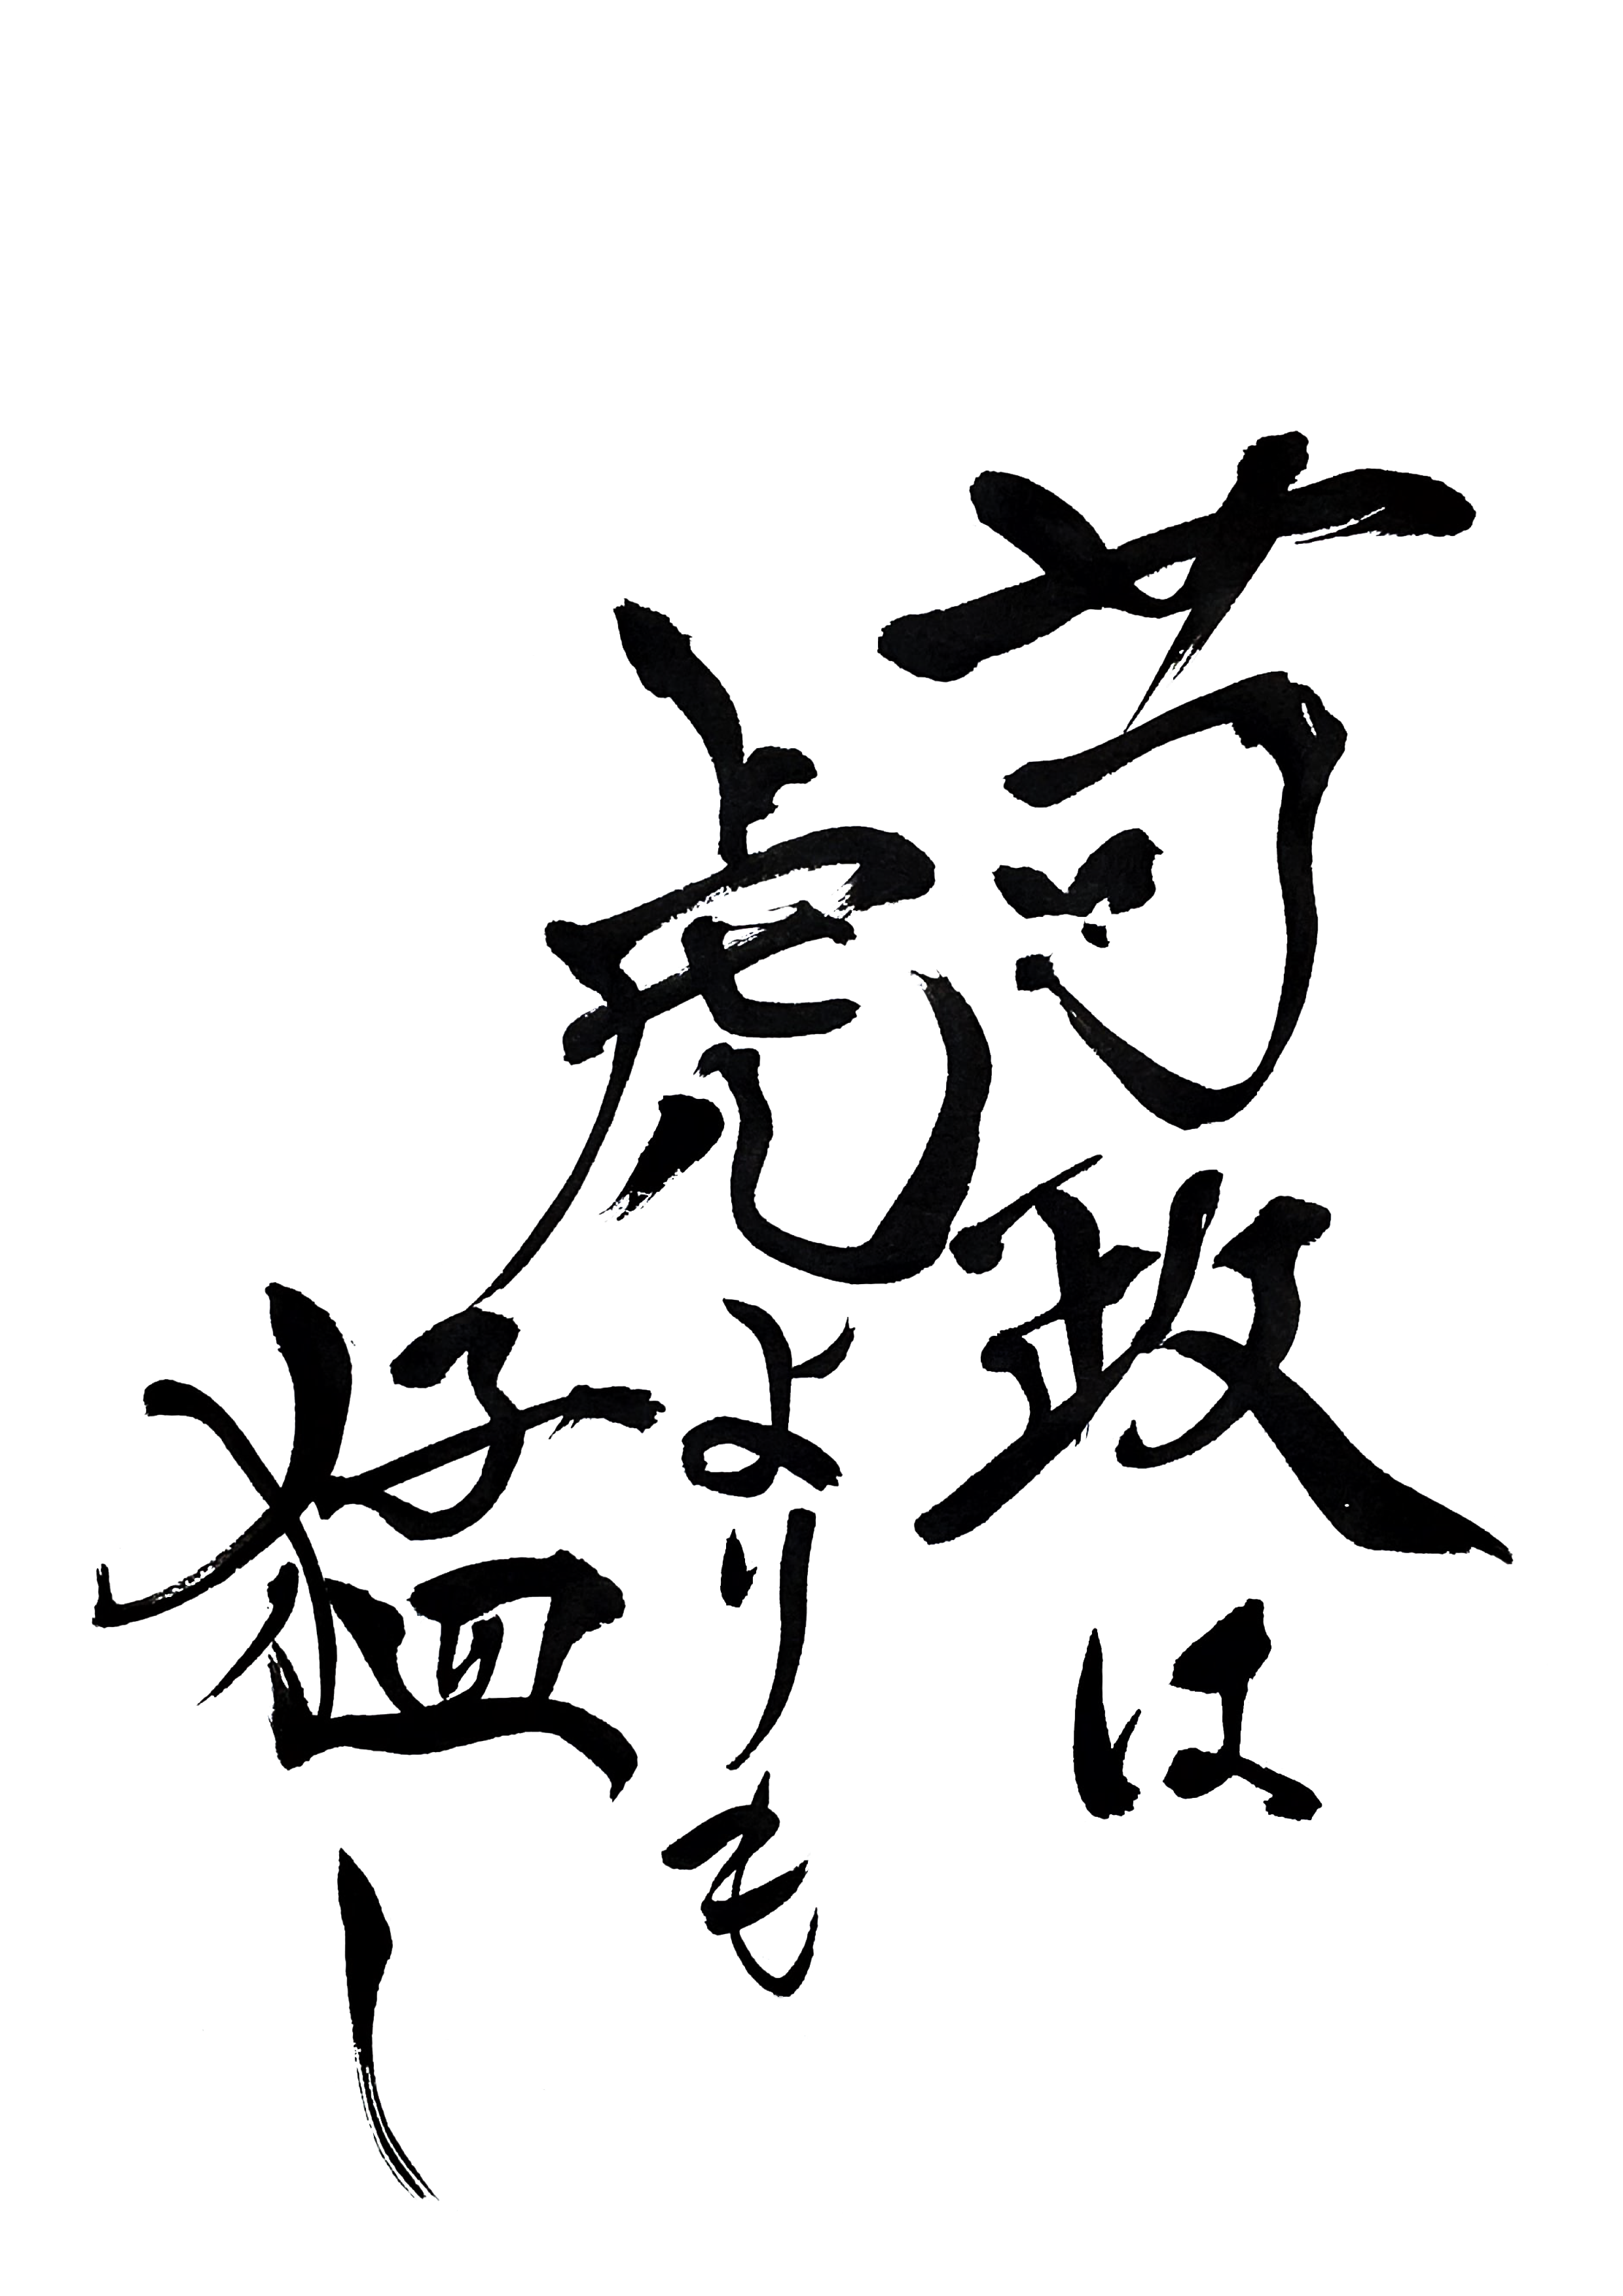 苛政は
虎よりも
猛し